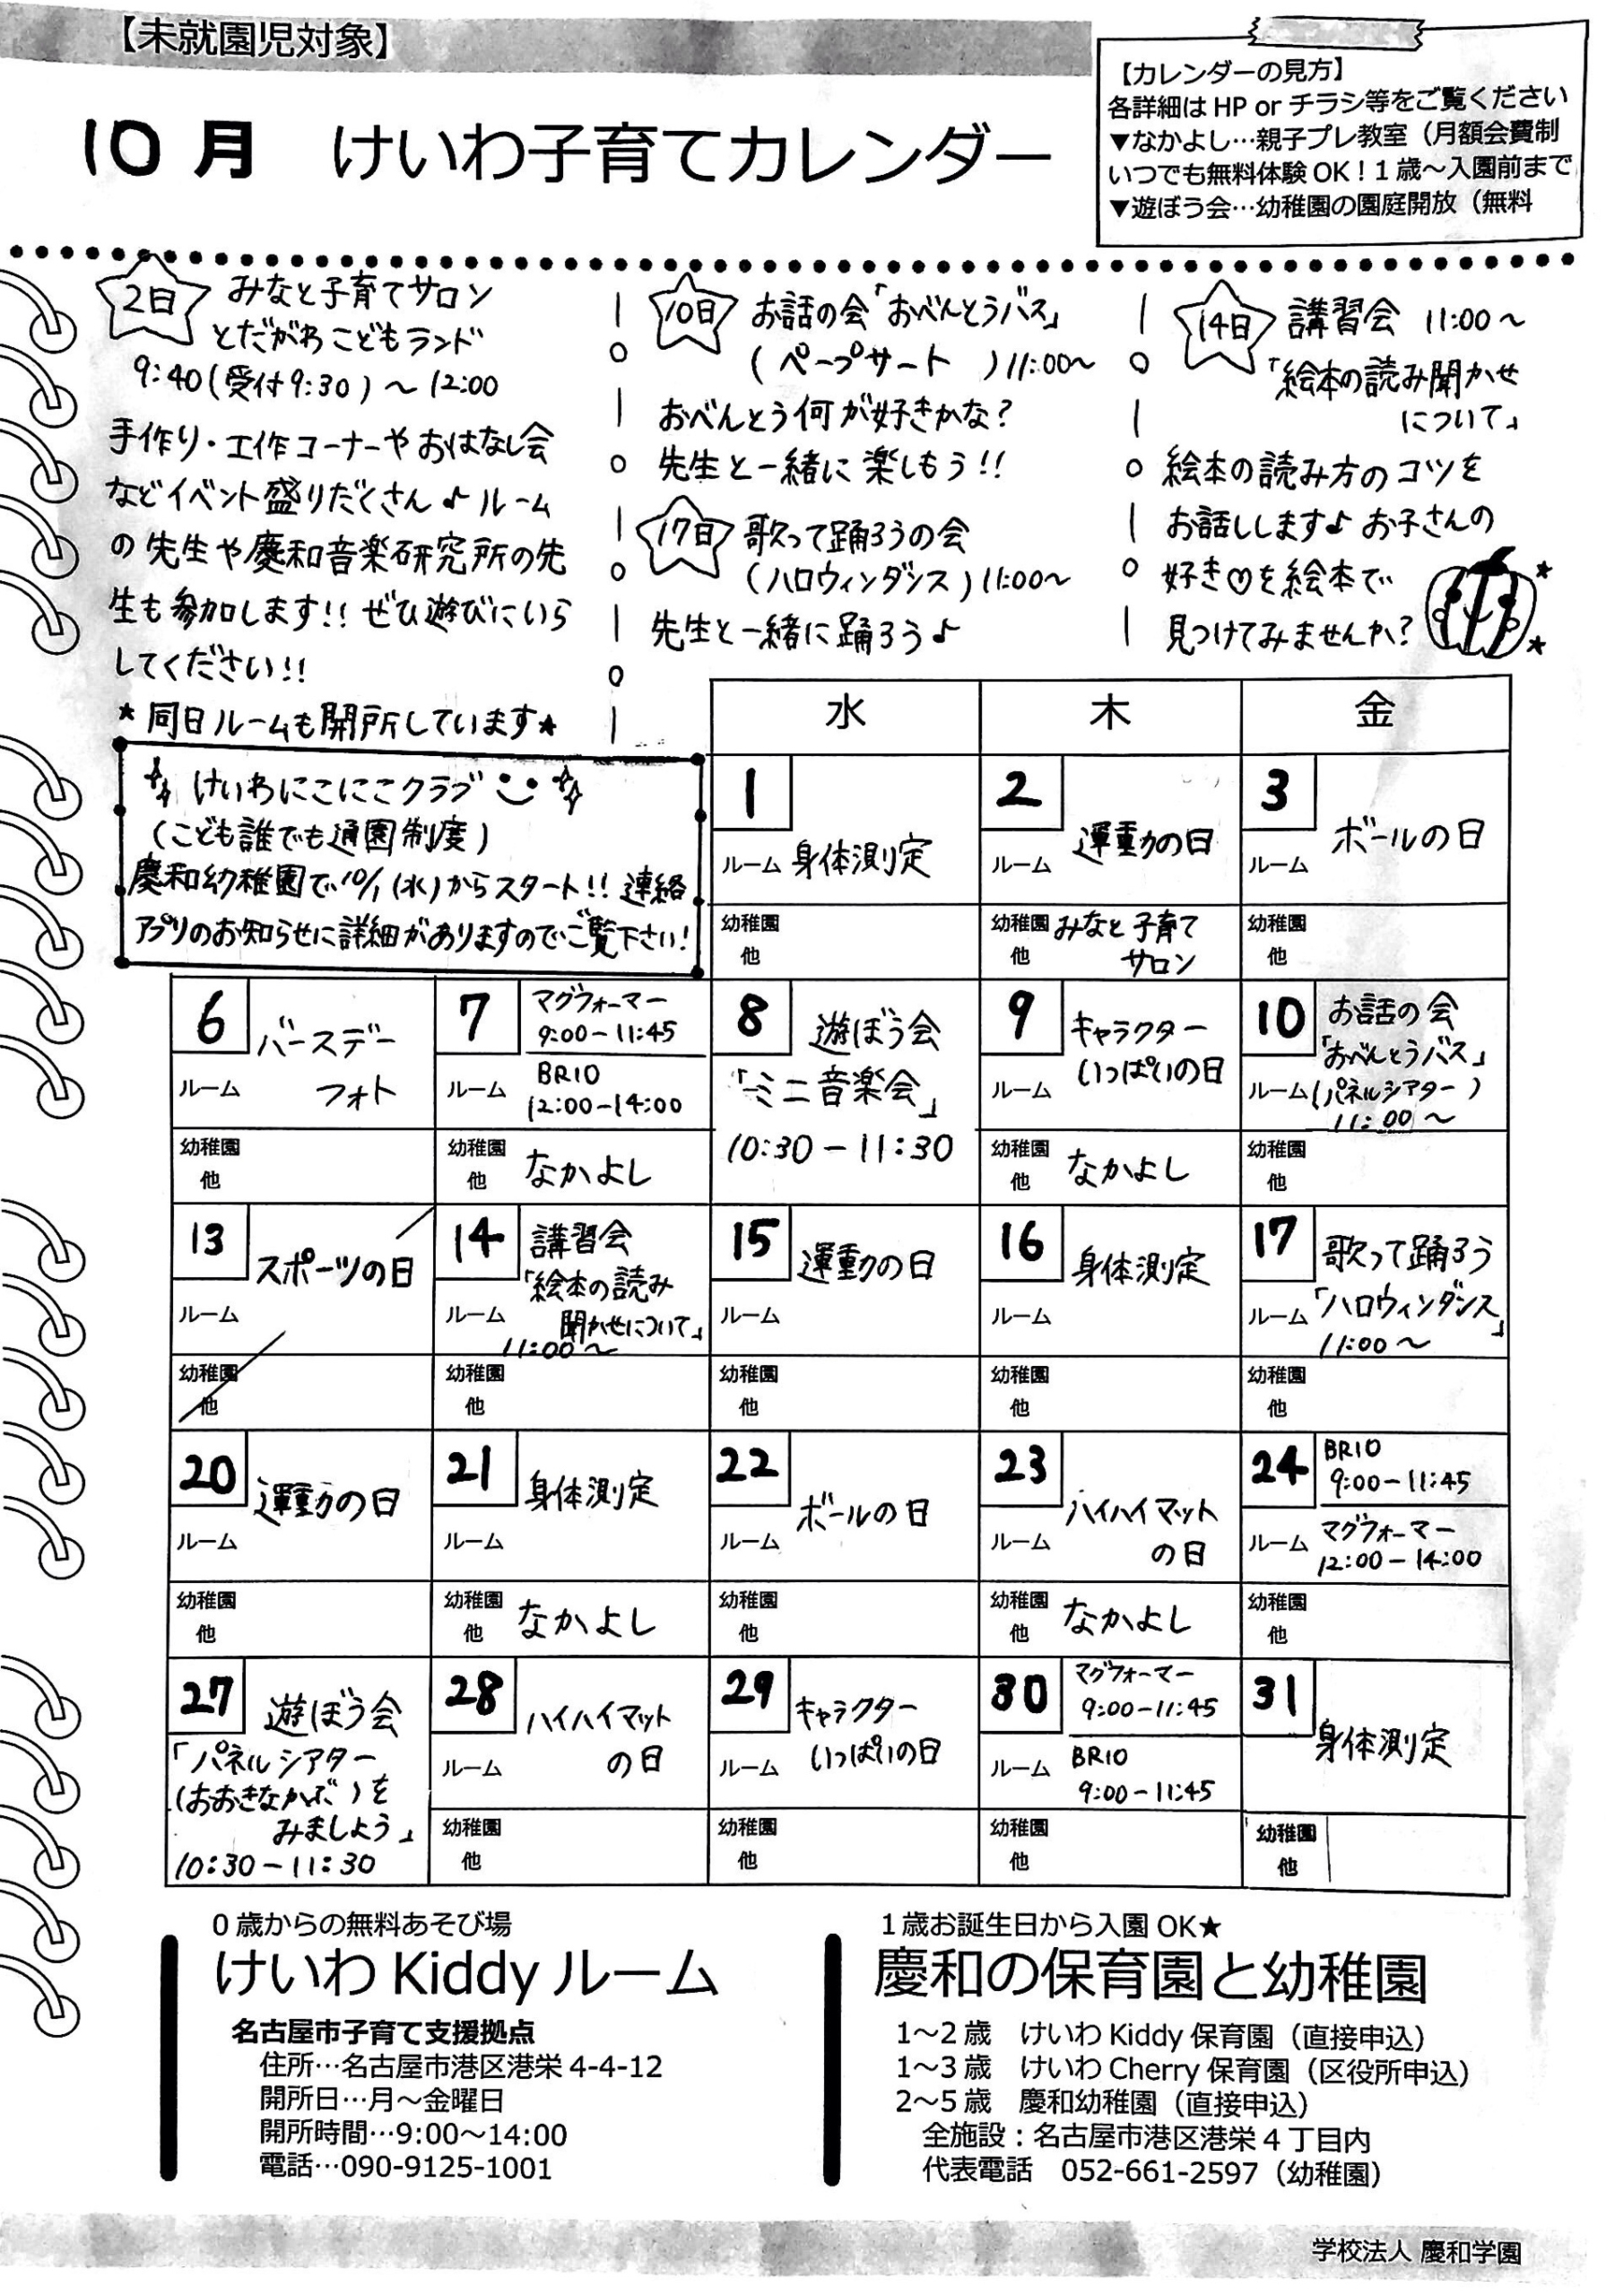 【未就園児対象】
10月 けいわ子育てカレンダー
【カレンダーの見方】
各詳細は HP or チラシ等をご覧ください
▼なかよし…親子プレ教室（月額会費制
いつでも無料体験 OK！1 歳～入園前まで
▼遊ぼう会…幼稚園の園庭開放（無料
2日 みなと子育てサロン
とだがわ こどもランド
9:40(受付9:30)～12:00
手作り・工作コーナーやおはなし会
などイベント盛りだくさん♪ルーム
の先生や慶和音楽研究所の先
生も参加します!! ぜひ遊びにいら
してください!!
★同日ルームも開所しています★
10日 お話の会「おべんとうバス」
(ペープサート )11:00～
おべんとう何が好きかな?
先生と一緒に楽しもう!!
17日 歌って踊ろうの会
(ハロウィンダンス)11:00～
先生と一緒に踊ろう♪
14日 講習会 11:00～
「絵本の読み聞かせ
について」
絵本の読み方のコツを
お話しします♪お子さんの
好き♡を絵本で
見つけてみませんか?
けいわにこにこクラブ
(こども誰でも通園制度)
慶和幼稚園で10/1(水)からスタート!! 連絡
アプリのお知らせに詳細がありますのでご覧下さい!
水 木 金
1 2 3
ルーム 身体測定
ルーム 運動の日
ルーム ボールの日
幼稚園
他
幼稚園 みなと子育て
他 サロン
幼稚園
他
6 バースデー
ルーム フォト
幼稚園
他
7 マグフォーマー
9:00-11:45
ルーム BRIO
12:00-14:00
幼稚園
他 なかよし
8 遊ぼう会
「ミニ音楽会」
10:30-11:30
9 キャラクター
いっぱいの日
ルーム
幼稚園
他 なかよし
10 お話の会
「おべんとうバス」
ルーム(パネルシアター)
11:00～
幼稚園
他
13 スポーツの日
ルーム
幼稚園
他
14 講習会
「絵本の読み
ルーム 聞かせについて」
11:00～
幼稚園
他
15 運動の日
ルーム
幼稚園
他
16 身体測定
ルーム
幼稚園
他
17 歌って踊ろう
ルーム「ハロウィンダンス」
11:00～
幼稚園
他
20 運動の日
ルーム
幼稚園
他
21 身体測定
ルーム
幼稚園
他 なかよし
22 ボールの日
ルーム
幼稚園
他
23 ハイハイマット
ルーム の日
幼稚園
他 なかよし
24 BRIO
9:00-11:45
ルーム マグフォーマー
12:00-14:00
幼稚園
他
27 遊ぼう会
「パネルシアター
(おおきなかぶ)を
みましょう」
10:30-11:30
28 ハイハイマット
ルーム の日
幼稚園
他
29 キャラクター
ルーム いっぱいの日
幼稚園
他
30 マグフォーマー
9:00-11:45
ルーム BRIO
9:00-11:45
幼稚園
他
31 身体測定
幼稚園
他
0 歳からの無料あそび場
けいわ Kiddy ルーム
名古屋市子育て支援拠点
住所…名古屋市港区港栄 4-4-12
開所日…月～金曜日
開所時間…9:00～14:00
電話…090-9125-1001
1 歳お誕生日から入園 OK★
慶和の保育園と幼稚園
1～2 歳 けいわ Kiddy 保育園（直接申込）
1～3 歳 けいわ Cherry 保育園（区役所申込）
2～5 歳 慶和幼稚園（直接申込）
全施設：名古屋市港区港栄 4 丁目内
代表電話 052-661-2597（幼稚園）
学校法人 慶和学園